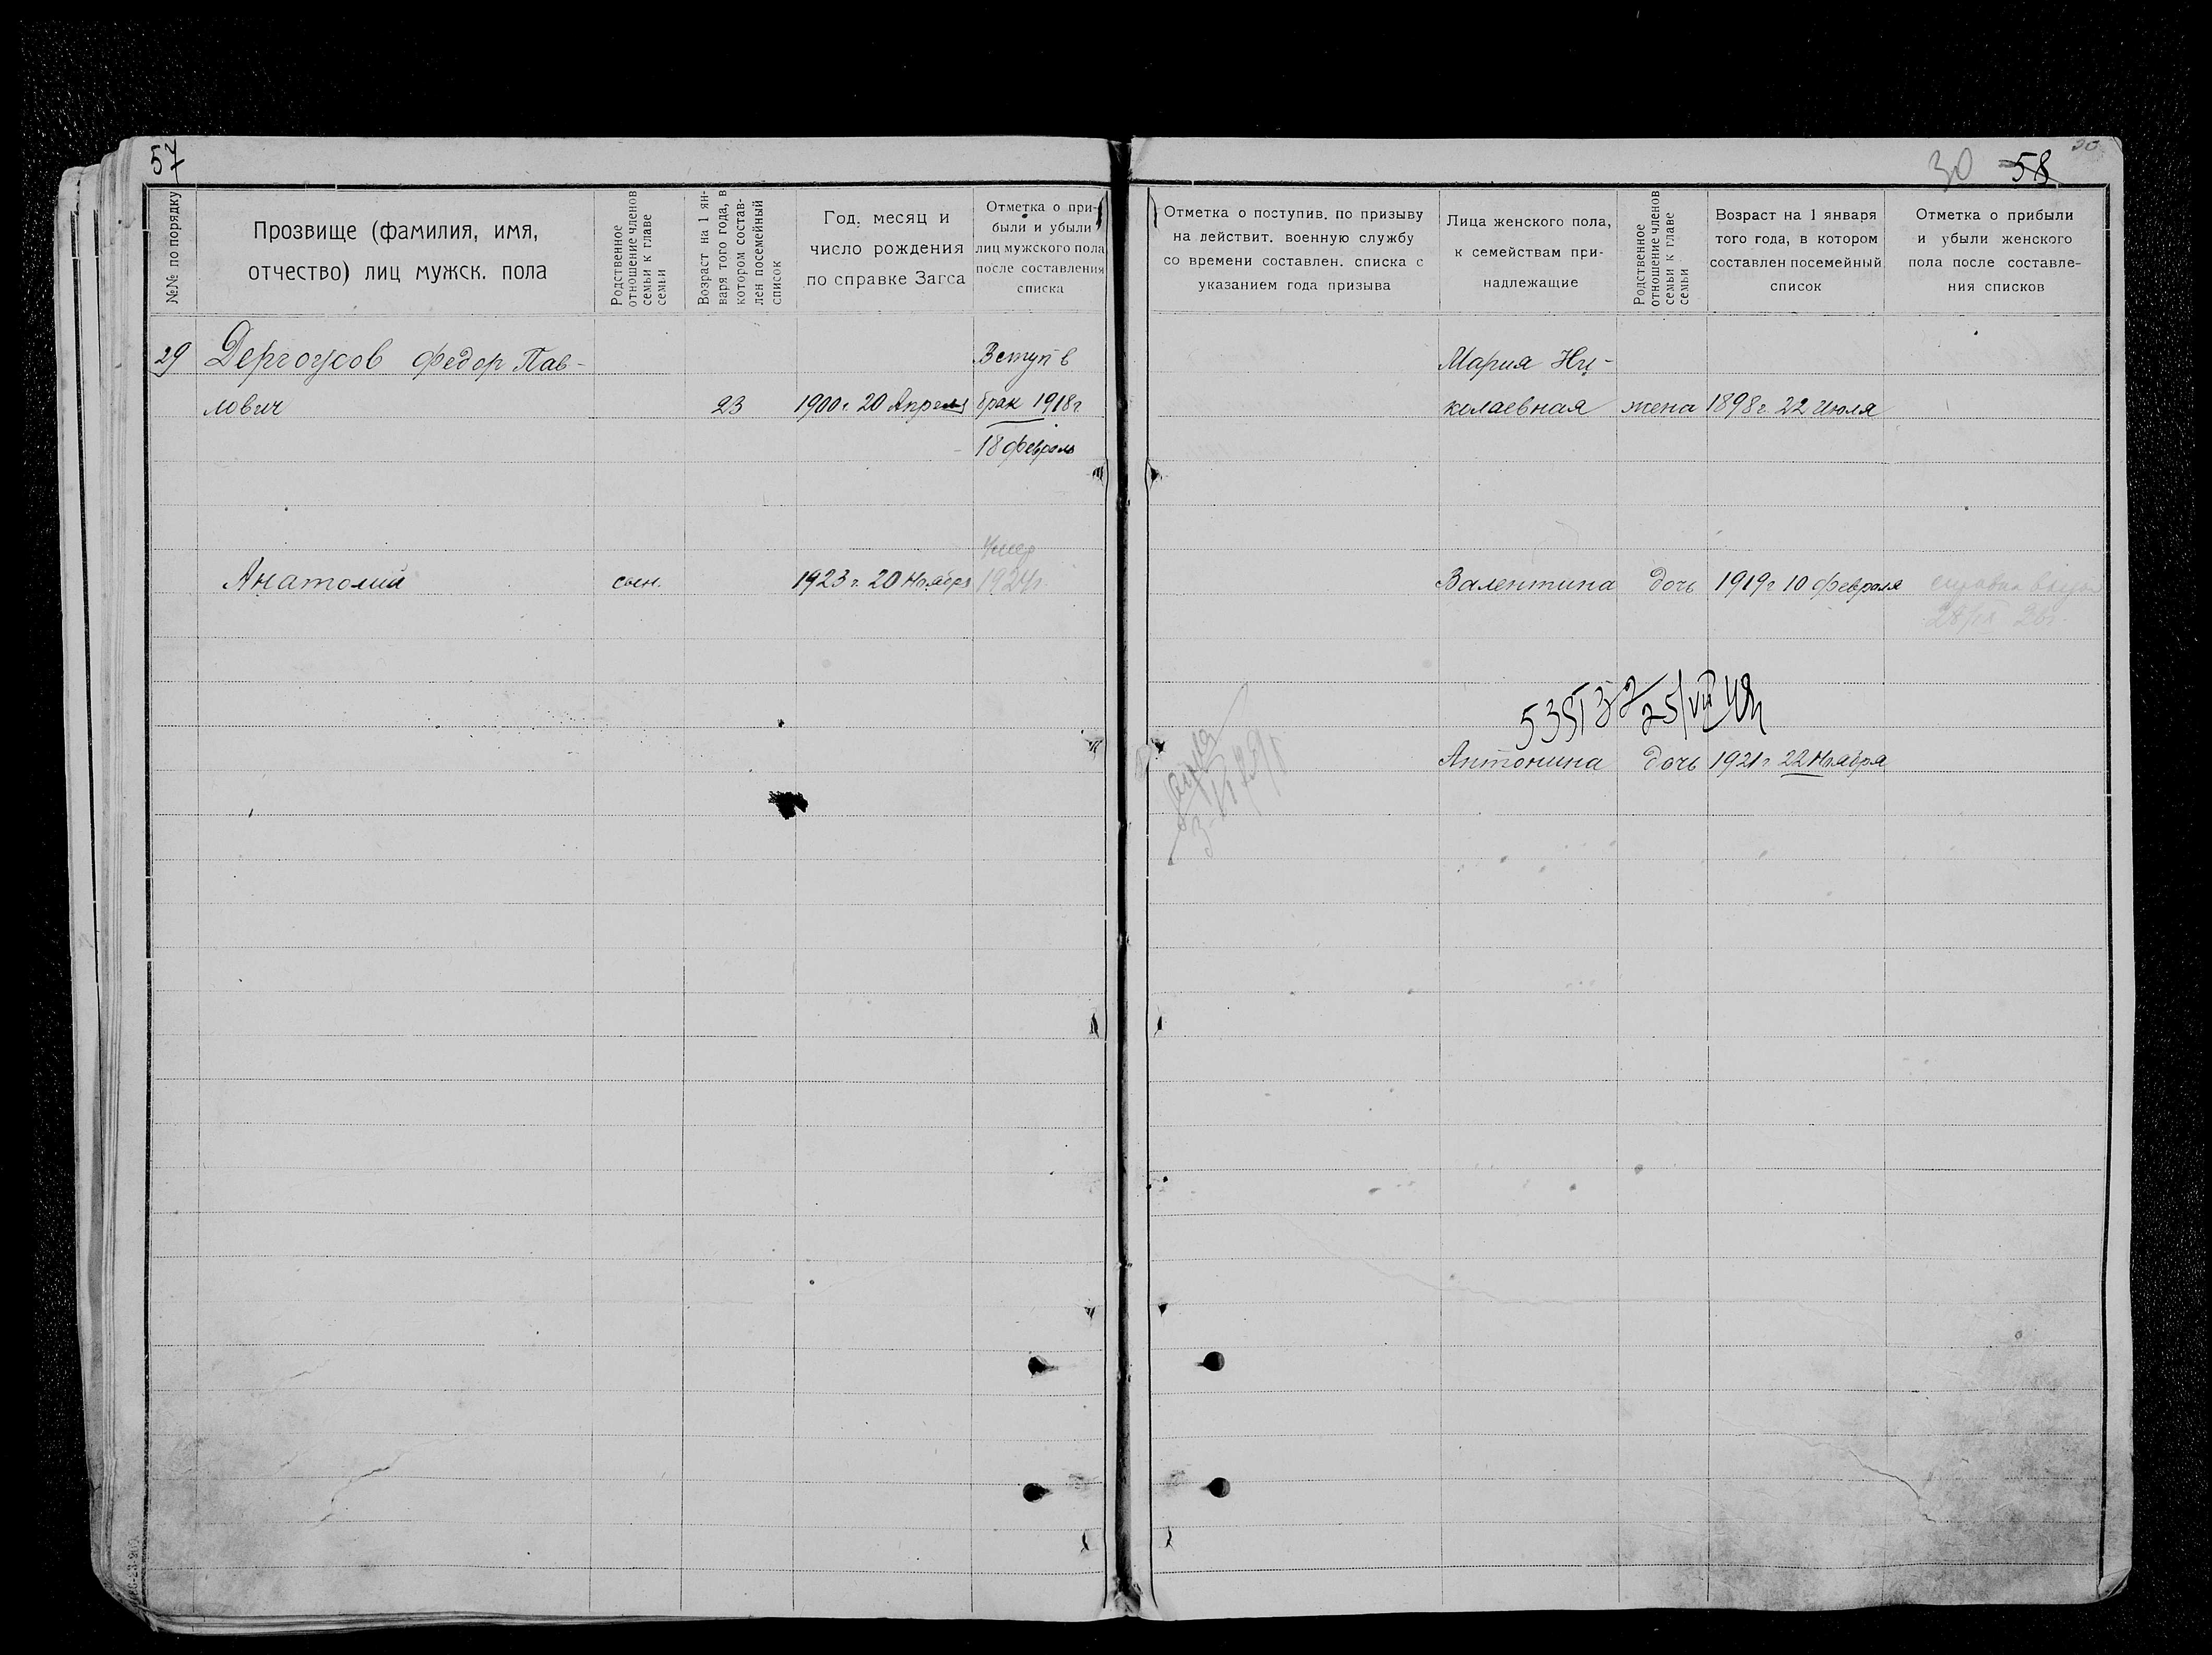 57
№№ по порядку
Прозвище (фамилия, имя,
отчество) лиц мужск. пола
Родственное
отношение членов
семьи к главе
семьи
Возраст на 1 ян-
варя того года, в
котором состав-
лен посемейный
список
Год, месяц и
число рождения
по справке Загса
Отметка о при-
были и убыли
лиц мужского пола
после составления
списка
29 Дергоусов Федор Пав- Вступ в
лович 23 1900 г. 20 Апреля брак 1918 г
18 февраль
Умер
Анатолий сын. 1923 г. 20 Ноября 1924 г.
30 58
Отметка о поступив. по призыву
на действит. военную службу
со времени составлен. списка с
указанием года призыва
Лица женского пола,
к семействам при-
надлежащие
Родственное
отношение членов
семьи к главе
семьи
Возраст на 1 января
того года, в котором
составлен посемейный
список
Отметка о прибыли
и убыли женского
пола после составле-
ния списков
Мария Ни-
колаевная жена 1898 г. 22 Июля
Валентина дочь 1919 г 10 февраля
Антонина дочь 1921 г 22 Ноября